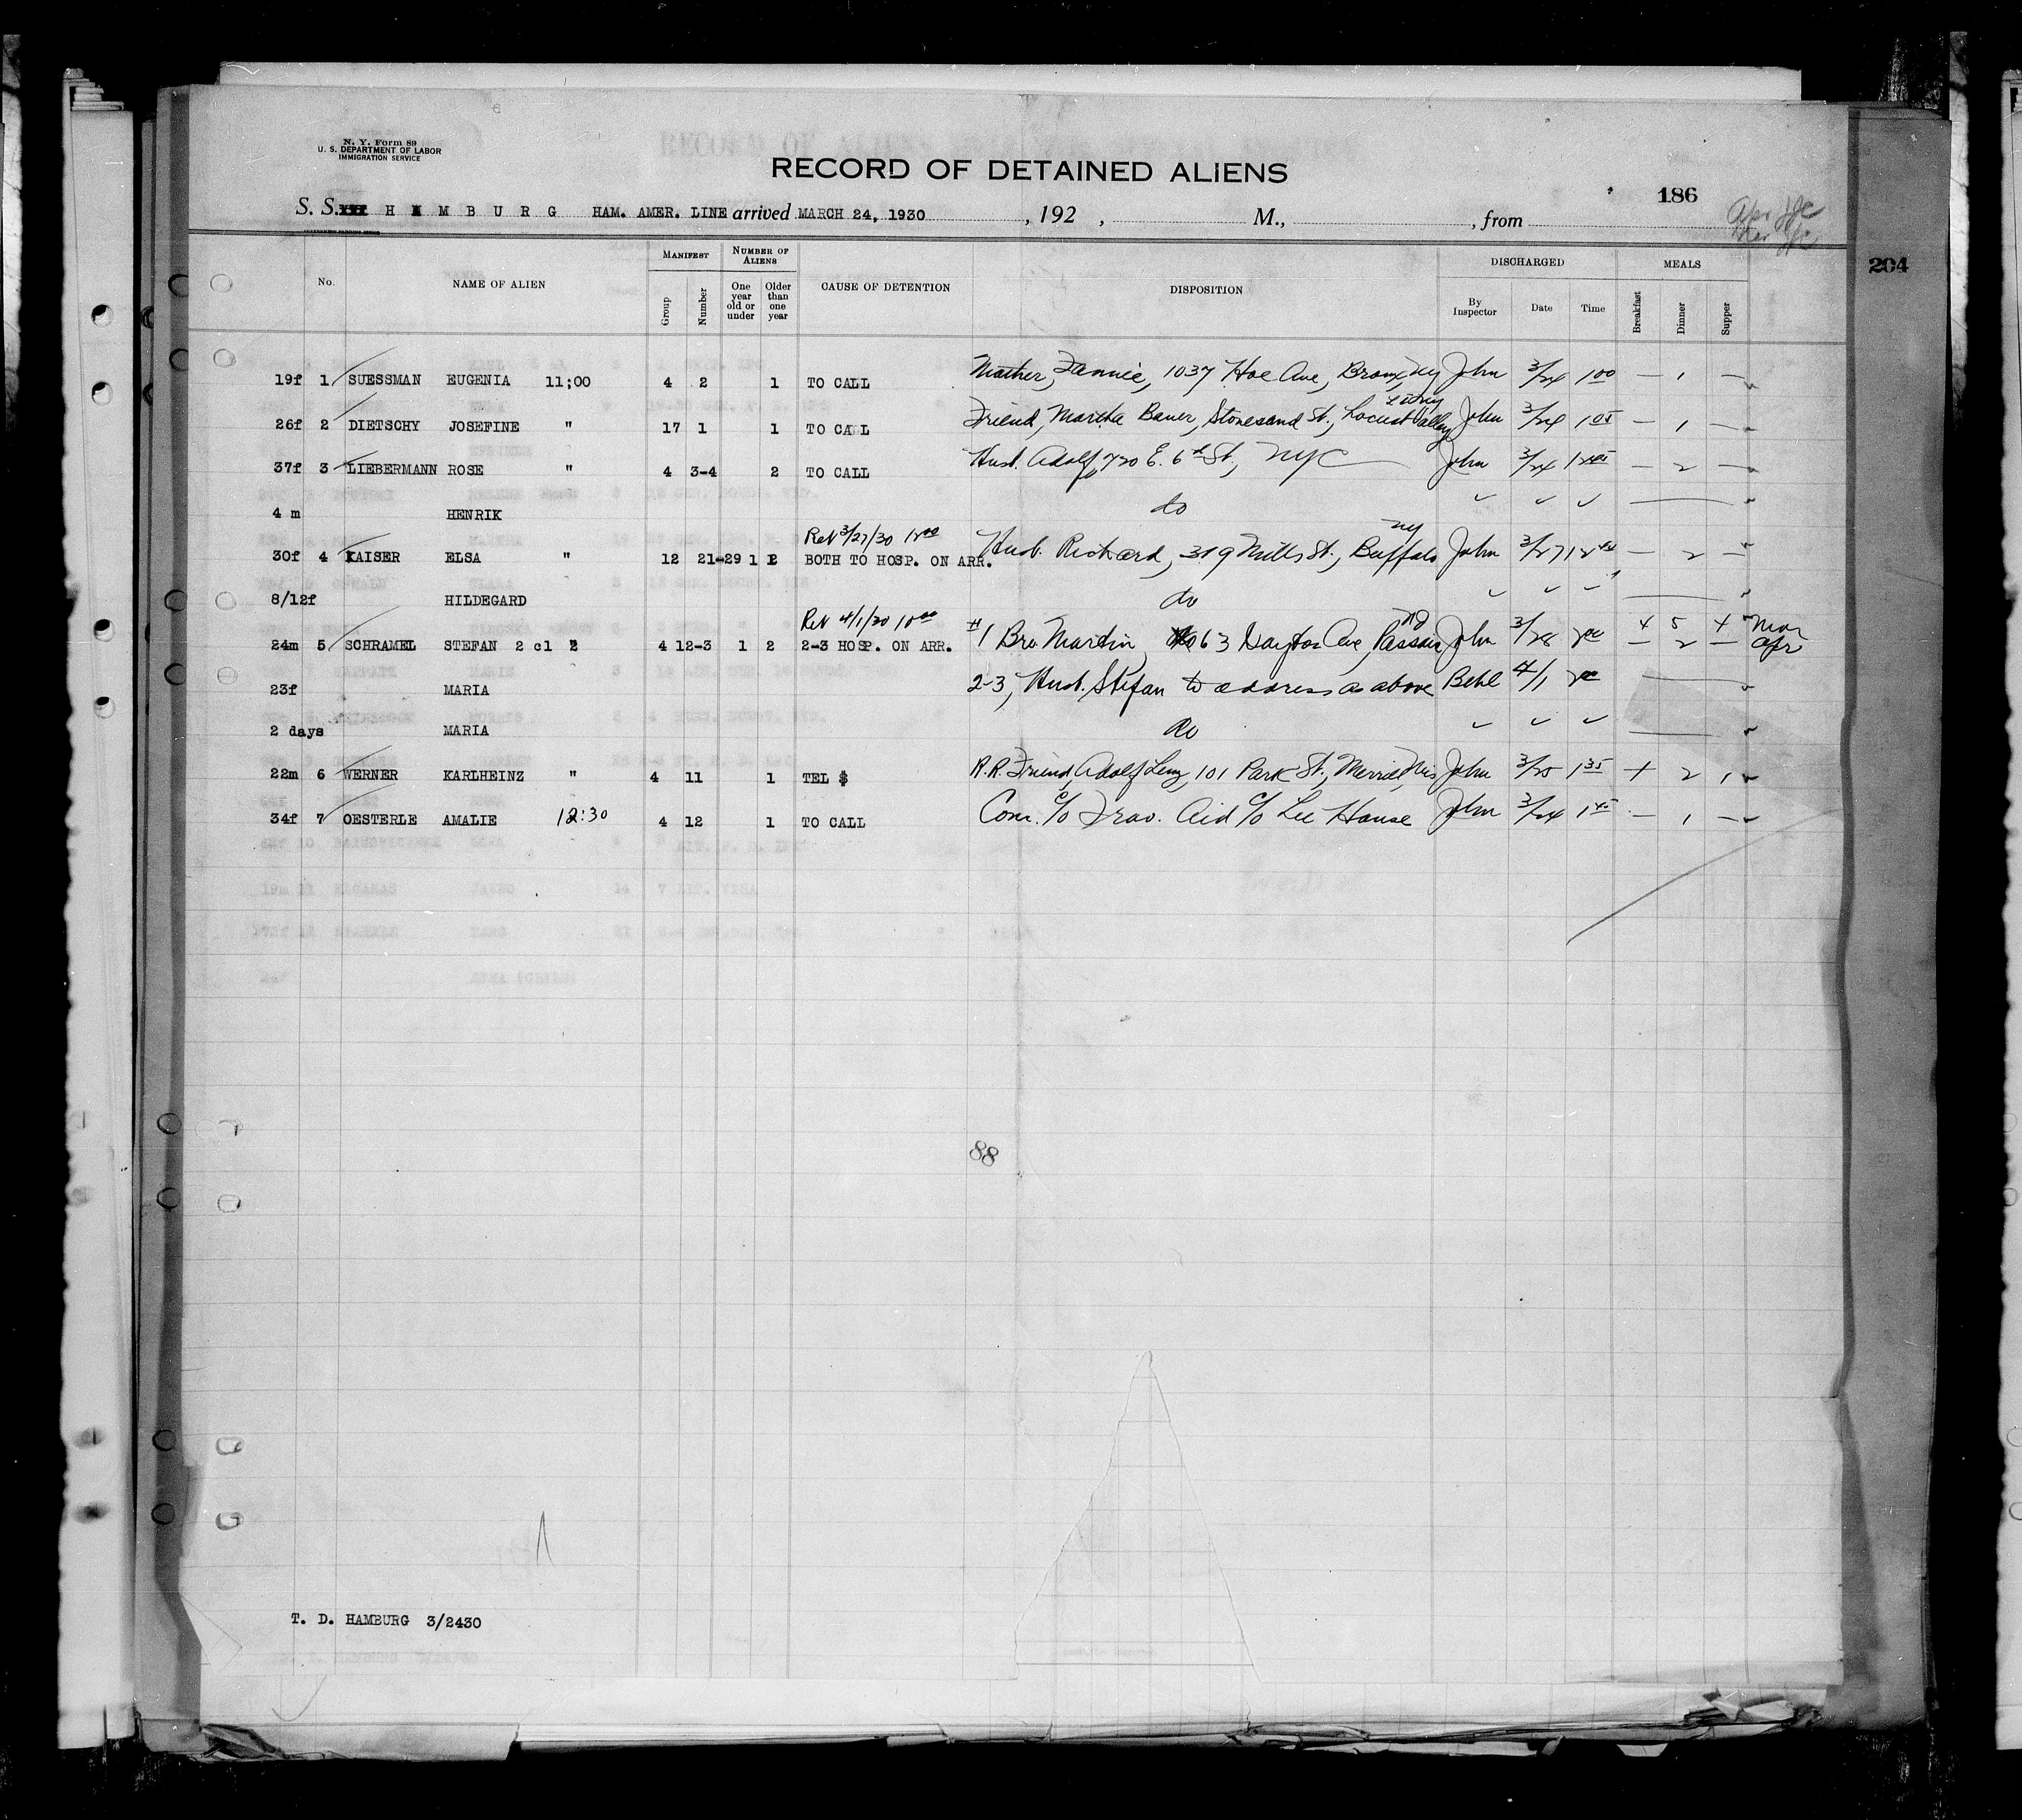 N. Y. Form 89
U. S. DEPARTMENT OF LABOR
IMMIGRATION SERVICE
RECORD OF DETAINED ALIENS
186
204
S. S. H A M B U R G HAM. AMER. LINE arrived MARCH 24, 1930, 192 , M., , from
No. NAME OF ALIEN MANIFEST NUMBER OF ALIENS CAUSE OF DETENTION DISPOSITION DISCHARGED MEALS
Group Number One year old or under Older than one year By Inspector Date Time Breakfast Dinner Supper
19f 1 SUESSMAN EUGENIA 11;00 4 2 1 TO CALL Mother, Fannie, 1037 Hoe Ave, Bronx, NY John 3/24 1 00 — 1 —
26f 2 DIETSCHY JOSEFINE " 17 1 1 TO CALL Friend, Martha Bauer, St., Locust Valley John 3/24 1 05 — 1 —
37f 3 LIEBERMANN ROSE " 4 3-4 2 TO CALL Husb. Adolf, 720 E. 6th St, NYC John 3/24 — 2 —
4 m HENRIK do
Rev 3/27/30
NY
30f 4 KAISER ELSA " 12 21-29 1 1 BOTH TO HOSP. ON ARR. Husb. Richard, 319 Mills St., Buffalo John 3/27 — 2 —
8/12f HILDEGARD do
Rev 4/1/30 10 00
NJ
4 5 4 Mar
24m 5 SCHRAMEL STEFAN 2 cl 2 4 12-3 1 2 2-3 HOSP. ON ARR. #1 Bro Martin, 63 Dayton Ave, Passaic John 3/28 — 2 — Apr
23f MARIA 2-3, Husb. Stefan to address as above Behl 4/1
2 days MARIA do
22m 6 WERNER KARLHEINZ " 4 11 1 TEL $ R.R. Friend, Adolf Lenz, 101 Park St., Merrill, Wis John 3/25 1 35 2 1
34f 7 OESTERLE AMALIE 12:30 4 12 1 TO CALL Com. c/o Trav. Aid c/o Lee House John 3/24 1 45 — 1 —
88
T. D. HAMBURG 3/2430